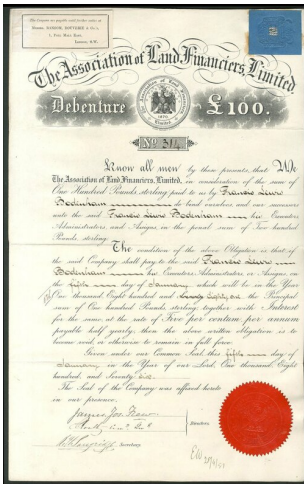 The Coupons are payable until further notice at
Messrs.
1, Pall Mall East,
London, S.W.
The Association of Land Financiers, Limited
Debenture £100.
No 314
Know all men by these presents, that We
The Association of Land Financiers, Limited, in consideration of the sum of
One Hundred Pounds sterling paid to us by Francis Lewis
Bodenham do bind ourselves and our successors
unto the said Francis Lewis Bodenham his Executors
Administrators and Assigns in the penal sum of Two hundred
Pounds sterling.
The condition of the above Obligation is that if
the said Company shall pay to the said Francis Lewis
Bodenham his Executors Administrators or Assigns on
the fifth day of January which will be in the Year
One thousand Eight hundred and Eighty six the Principal
sum of One hundred Pounds sterling together with Interest
for the same at the rate of Five per centum per annum
payable half yearly, then the above written obligation is to
become void or otherwise to remain in full force.
Given under our Common Seal this fifth day of
January in the Year of our Lord One thousand Eight
hundred and Seventy
The Seal of the Company was affixed hereto
in our presence.
James
Directors.
Secretary.